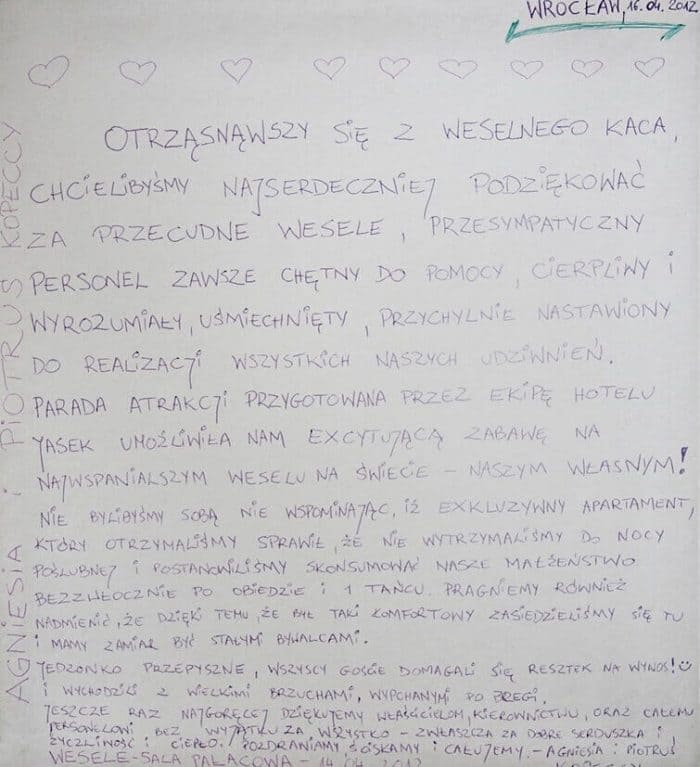 WROCŁAW, 16.04.2012
OTRZĄSNĄWSZY SIĘ Z WESELNEGO KACA,
CHCIELIBYŚMY NAJSERDECZNIEJ PODZIĘKOWAĆ
ZA PRZECUDNE WESELE, PRZESYMPATYCZNY
PERSONEL ZAWSZE CHĘTNY DO POMOCY, CIERPLIWY I
WYROZUMIAŁY, UŚMIECHNIĘTY, PRZYCHYLNIE NASTAWIONY
DO REALIZACJI WSZYSTKICH NASZYCH UDZIWNIEŃ.
PARADA ATRAKCJI PRZYGOTOWANA PRZEZ EKIPĘ HOTELU
JASEK UMOŻLIWIŁA NAM EXCYTUJĄCĄ ZABAWĘ NA
NAJWSPANIALSZYM WESELU NA ŚWIECIE – NASZYM WŁASNYM!
NIE BYLIBYŚMY SOBĄ NIE WSPOMINAJĄC, IŻ EXKLUZYWNY APARTAMENT,
KTÓRY OTRZYMALIŚMY SPRAWIŁ, ŻE NIE WYTRZYMALIŚMY DO NOCY
POŚLUBNEJ I POSTANOWILIŚMY SKONSUMOWAĆ NASZE MAŁŻEŃSTWO
BEZZWŁOCZNIE PO OBIEDZIE I 1 TAŃCU. PRAGNIEMY RÓWNIEŻ
NADMIENIĆ, ŻE DZIĘKI TEMU, ŻE BYŁ TAKI KOMFORTOWY ZASIEDZIELIŚMY SIĘ TU
I MAMY ZAMIAR BYĆ STAŁYMI BYWALCAMI.
JEDZONKO PRZEPYSZNE, WSZYSCY GOŚCIE DOMAGALI SIĘ RESZTEK NA WYNOS! ☺
I WYCHODZILI Z WIELKIMI BRZUCHAMI, WYPCHANYMI PO BRZEGI.
JESZCZE RAZ NAJGORĘCEJ DZIĘKUJEMY WŁAŚCICIELOM, KIEROWNICTWU, ORAZ CAŁEMU
PERSONELOWI BEZ WYJĄTKU ZA WSZYSTKO – ZWŁASZCZA ZA DOBRE SERDUSZKA I
ŻYCZLIWOŚĆ I CIEPŁO. POZDRAWIAMY, ŚCISKAMY I CAŁUJEMY. – AGNIESIA I PIOTRUŚ
WESELE – SALA PAŁACOWA – 14.04.2012 KOPECCY
AGNIESIA I PIOTRUŚ KOPECCY